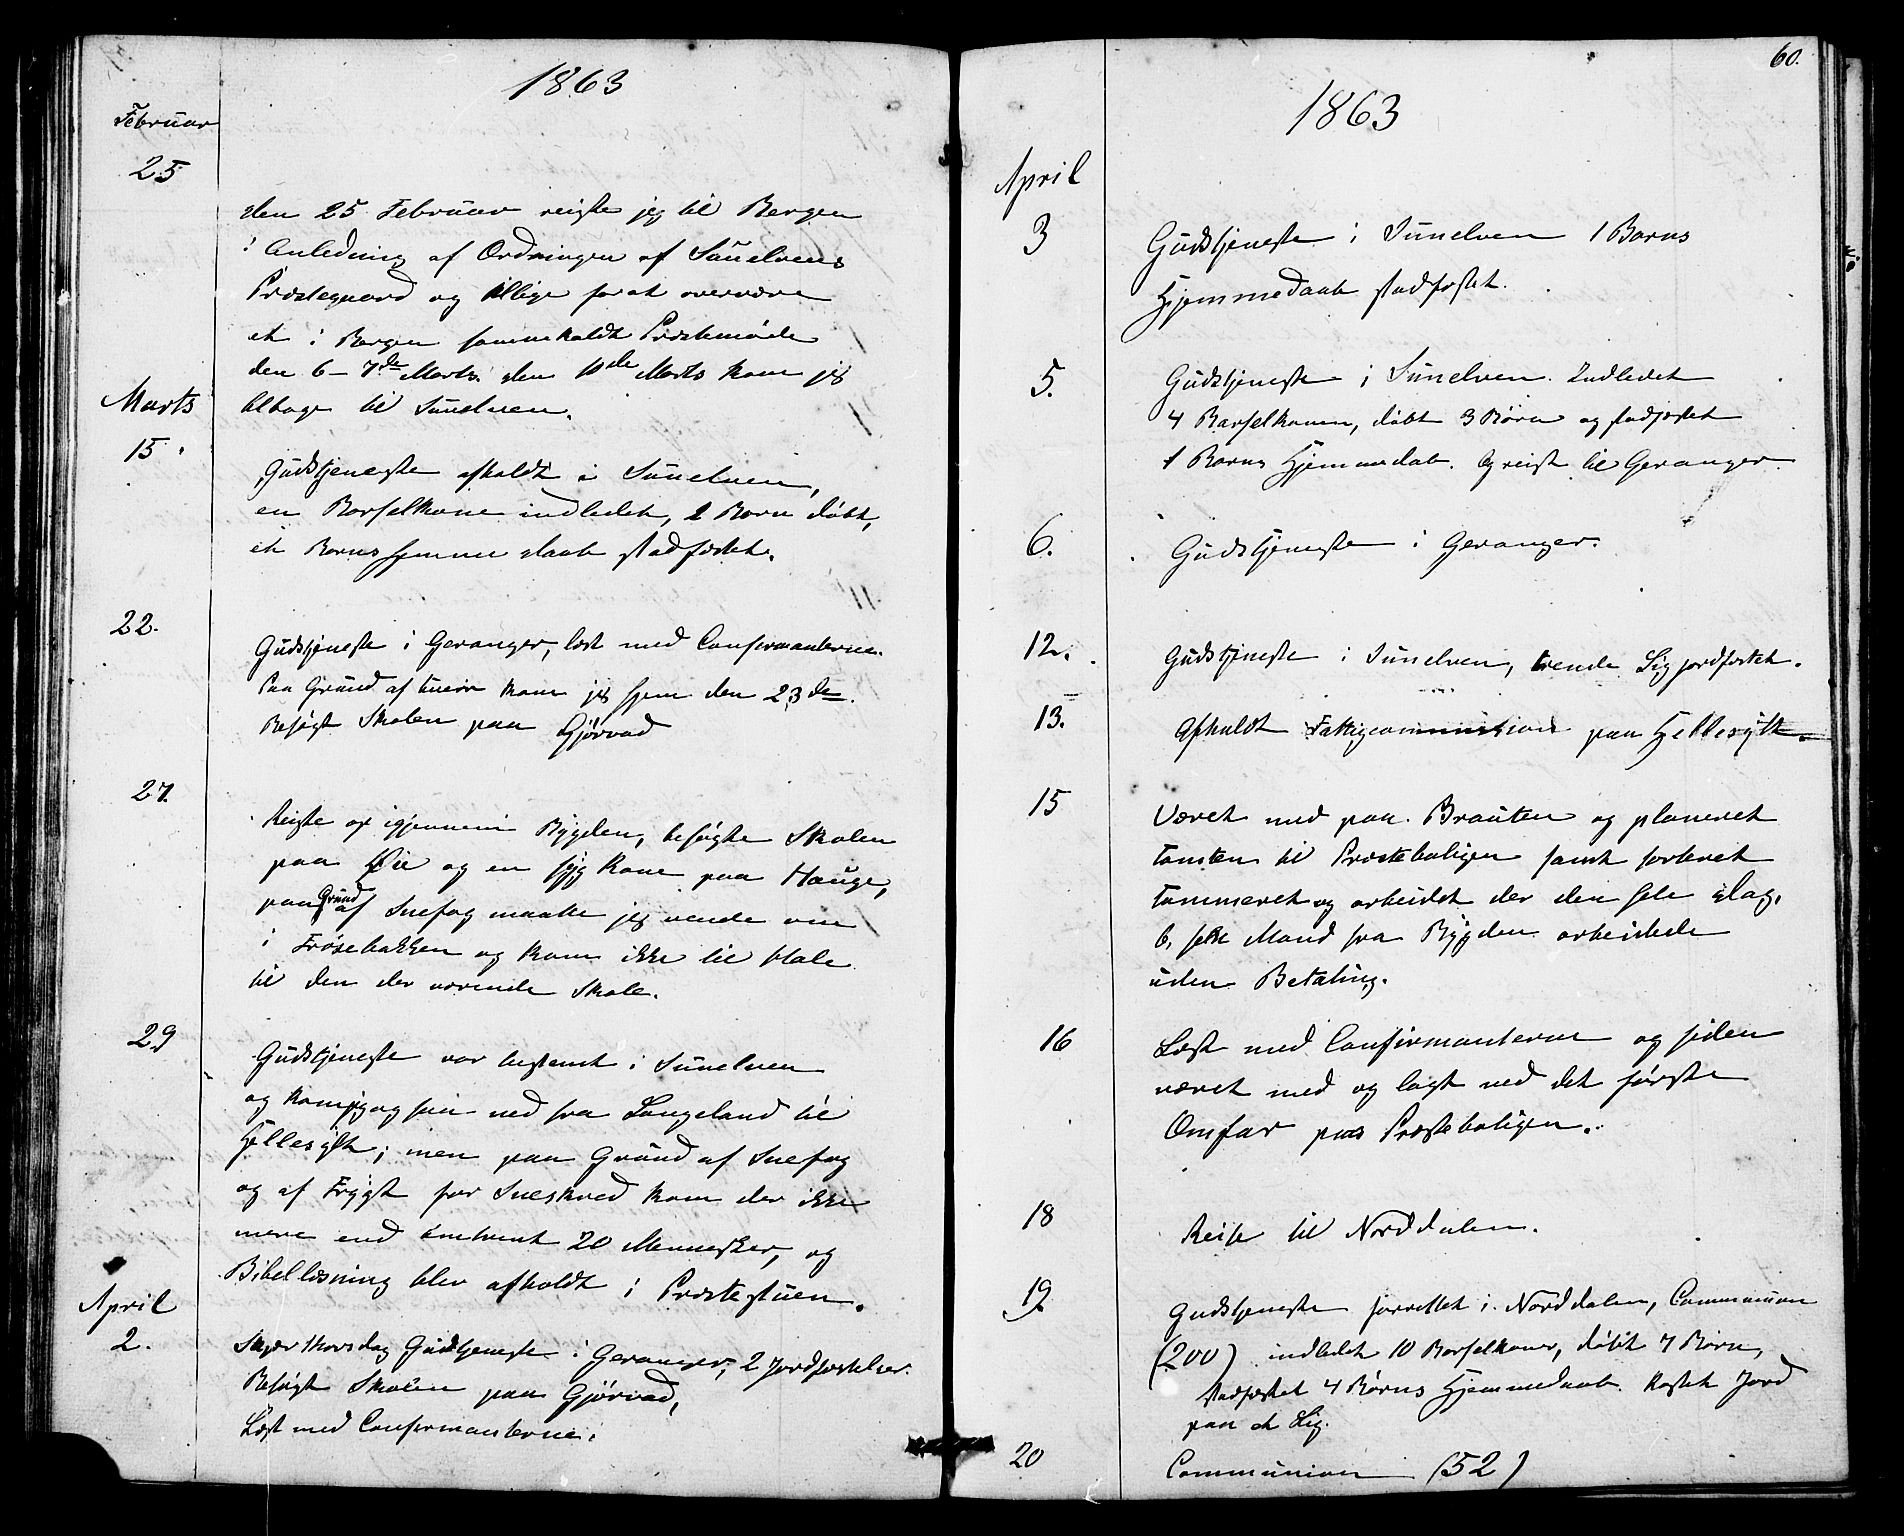 1863
Februar
25
den 25 Februar reiste jeg til Bergen
i Anledning af Ordningen af Sunelvens
Præstegaard og tillige for at overvære
et i Bergen sammekaldt Præstemøde
den 6-7de Marts. den 10de Marts kom jeg
tilbage til Sunelven.
Marts
15
Gudstjeneste afholdt i Sunelven,
en Barselkone indledet, 2 Børn døbt,
et Barns hjemme daab stadfæstet.
22.
Gudstjeneste i Geranger, læst med Confirmanterne.
Paa Grund af kom jeg hjem den 23de.
Besøgt Skolen paa Gjørvad
27.
Reiste op igjennem Bygden, besøgte Skolen
paa Øie og en syg Kone paa Hauge,
paa Grund af Snefog maatte jeg vende om
i Frøsebakken og kom ikke til
til den der værende Skole.
29
Gudstjeneste var bestemt i Sunelven
og kom jeg ogsaa ned fra Langeland til
Hellesylt; men paa Grund af Snefog
og af Frygt for Sneskred kom der ikke
mere end omtrent 20 Mennesker, og
Bibellæsning blev afholdt i Præstestuen.
April
2.
Skjær thorsdag Gudstjeneste i Geranger, 2 Jordfæstelser.
Besøgt Skolen paa Gjørvad,
Læst med Confirmanterne.
60.
1863
April
3
Gudstjeneste i Sunelven 1 Barns
Hjemmedaab stadfæstet.
5.
Gudstjeneste i Sunelven. Indledet
4 Barselkoner, døbt 3 Børn og stadfæstet
1 Barns Hjemmedab. Og reist til Geranger.
6.
Gudstjeneste i Geranger.
12.
Gudstjeneste i Sunelven, trende Lig jordfæstet.
13.
Afholdt Fattigcommission paa Hellesylt.
15
Været med paa Brauten og planeret
Tomten til Præsteboligen samt sorteret
Tømmeret og arbeidet der den hele Dag.
6, sex Mand fra Bygden arbeidede
uden Betaling.
16
Læst med Confirmanterne og siden
været med og lagt ned det første
Omfar paa Præsteboligen.
18
Reist til Norddalen.
19.
Gudstjeneste forrettet i Norddalen, Communion
(200) indledet 10 Barselkoner, døbt 7 Børn,
stadfæstet 4 Børns Hjemmedaab. Kastet Jord
paa et Lig.
20
Communion (52)